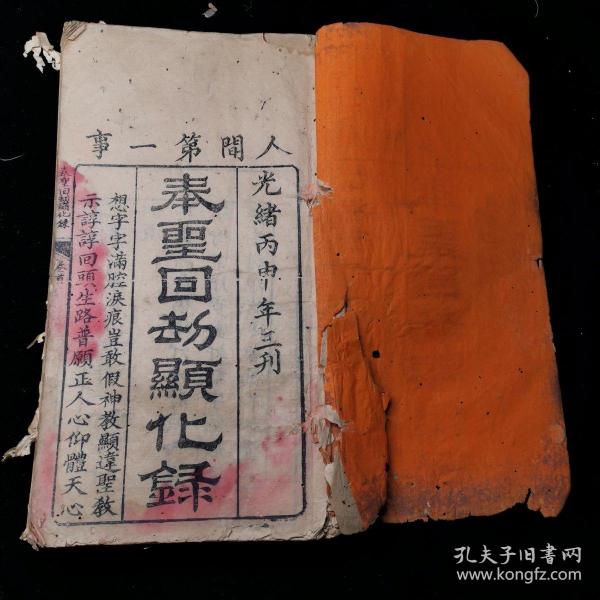 人間第一事
光緒丙申年三刊
奉聖回劫顯化錄
想字字滿腔淚痕豈敢假神教顯違聖教
示諄諄回頭生路普願正人心仰體天心
奉聖回劫顯化錄
卷首
孔夫子旧书网
www.kongfz.com